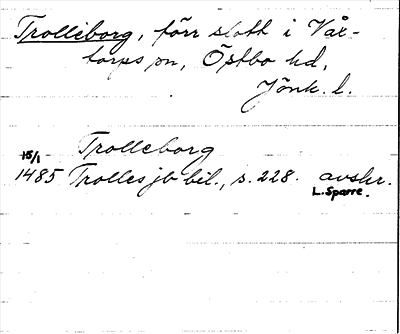 Trolleborg, förr slott i Vår-
torps sn, Östbo hd,
Jönk. l.
Trolleborg
15/1
1485 Trolles jb bil., s. 228. avskr.
L. Sparre.